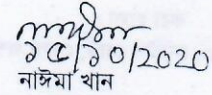 নাঈমা
১৫/১০/2020
নাঈমা খান